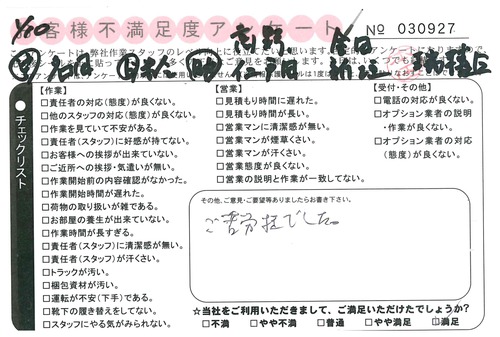 1/30
お客様不満足度アンケート
No 030927
チェックリスト
【作業】
□責任者の対応(態度)が良くない。
□他のスタッフの対応(態度)が良くない。
□作業を見ていて不安がある。
□責任者(スタッフ)に好感が持てない。
□お客様への挨拶が出来ていない。
□ご近所への挨拶・気遣いが無い。
□作業開始前の内容確認がなかった。
□作業開始時間が遅れた。
□荷物の取り扱いが雑である。
□お部屋の養生が出来ていない。
□作業時間が長すぎる。
□責任者(スタッフ)に清潔感が無い。
□責任者(スタッフ)が汗くさい。
□トラックが汚い。
□梱包資材が汚い。
□運転が不安(下手)である。
□靴下の履き替えをしてない。
□スタッフにやる気がみられない。
【営業】
□見積もり時間に遅れた。
□見積もり時間が長い。
□営業マンに清潔感が無い。
□営業マンが煙草くさい。
□営業マンが汗くさい。
□営業態度が良くない。
□営業の説明と作業が一致してない。
【受付・その他】
□電話の対応が良くない。
□オプション業者の説明
・作業が良くない。
□オプション業者の対応
(態度)が良くない。
その他、ご意見・ご要望等ありましたらお書き下さい。
ご苦労拉でした。
☆当社をご利用いただきまして、ご満足いただけたでしょうか?
□不満 □やや不満 □普通 □やや満足 □満足